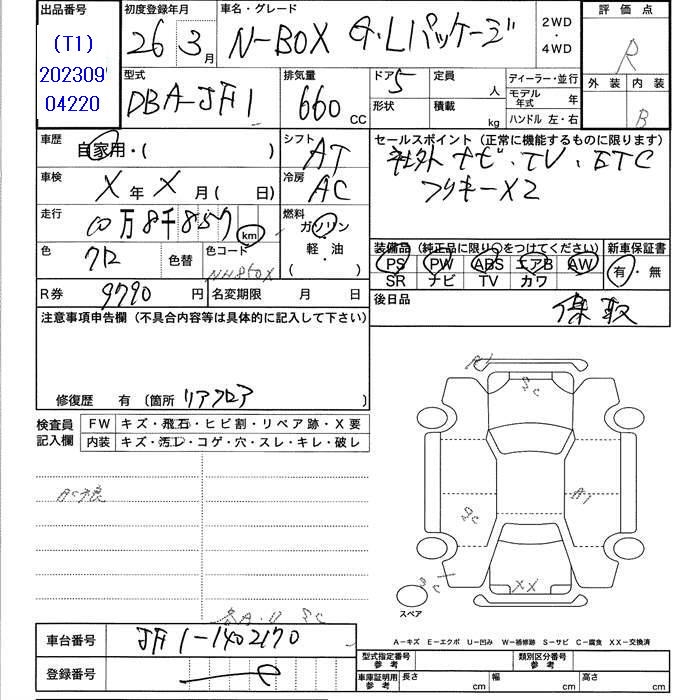 出品番号 初度登録年月 車名・グレード 評価点
(T1) 26 3月 N-BOX G・Lパッケージ 2WD・4WD R
202309
04220
型式 排気量 ドア 5 定員 人 ディーラー・並行 外装 内装
DBA-JF1 660 CC 形状 積載 kg モデル年式 年 B
ハンドル 左・右
車歴 自家用・( ) シフト AT セールスポイント (正常に機能するものに限ります)
車検 X年X月( 日) 冷房 AC 社外ナビ・TV・ETC
走行 万8千857 km 燃料 ガソリン・軽・油 ( )
色 クロ 色替 色コード NH850X
装備品 (純正品に限り○をつけてください) 新車保証書
PS PW ABS エアB AW 有・無
SR ナビ TV カワ
R券 9790 円 名変期限 月 日 後日品 保 取
注意事項申告欄 (不具合内容等は具体的に記入して下さい)
修復歴 有 (箇所 リアフロア
検査員記入欄 FW キズ・飛石・ヒビ割・リペア跡・X要
内装 キズ・汚レ・コゲ・穴・スレ・キレ・破レ
スペア
XX
A1
A-キズ E-エクボ U-凹み W-補修跡 S-サビ C-腐食 XX-交換済
車台番号 JF1-1402170
登録番号
型式指定番号 参考 類別区分番号 参考
車庫証明用 参考 長さ cm 幅 cm 高さ cm